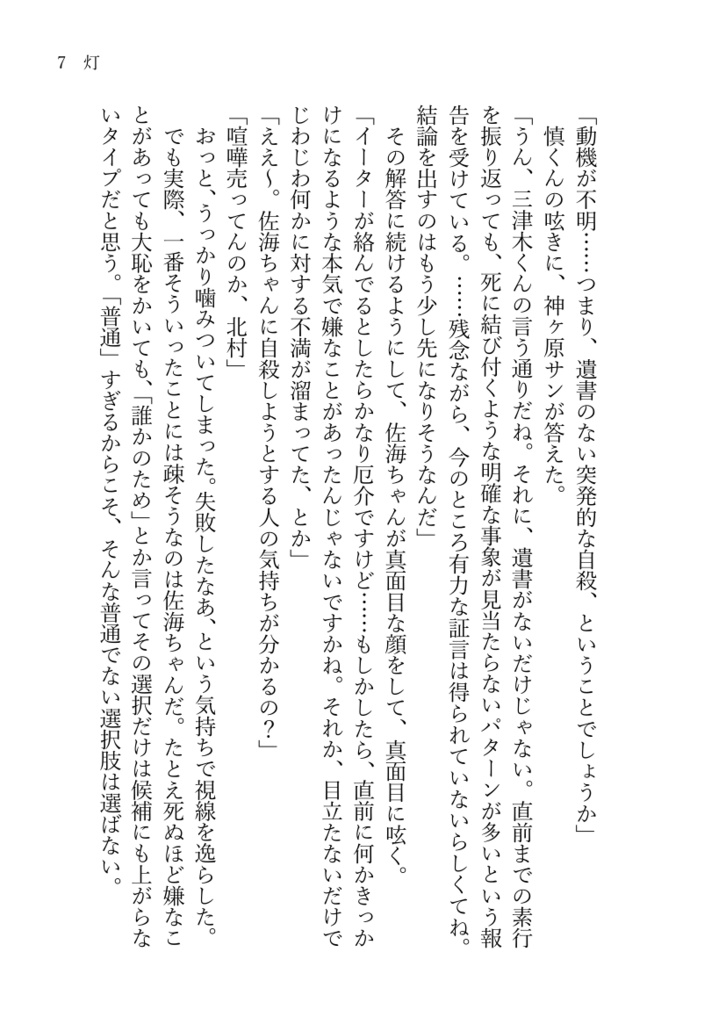 7　灯
「動機が不明……つまり、遺書のない突発的な自殺、ということでしょうか」
　慎くんの呟きに、神ヶ原サンが答えた。
「うん、三津木くんの言う通りだね。それに、遺書がないだけじゃない。直前までの素行
を振り返っても、死に結び付くような明確な事象が見当たらないパターンが多いという報
告を受けている。……残念ながら、今のところ有力な証言は得られていないらしくてね。
結論を出すのはもう少し先になりそうなんだ」
　その解答に続けるようにして、佐海ちゃんが真面目な顔をして、真面目に呟く。
「イーターが絡んでるとしたらかなり厄介ですけど……もしかしたら、直前に何かきっか
けになるような本気で嫌なことがあったんじゃないですかね。それか、目立たないだけで
じわじわ何かに対する不満が溜まってた、とか」
「ええ〜。佐海ちゃんに自殺しようとする人の気持ちが分かるの？」
「喧嘩売ってんのか、北村」
　おっと、うっかり噛みついてしまった。失敗したなあ、という気持ちで視線を逸らした。
　でも実際、一番そういったことには疎そうなのは佐海ちゃんだ。たとえ死ぬほど嫌なこ
とがあっても大恥をかいても、「誰かのため」とか言ってその選択だけは候補にも上がらな
いタイプだと思う。「普通」すぎるからこそ、そんな普通でない選択肢は選ばない。